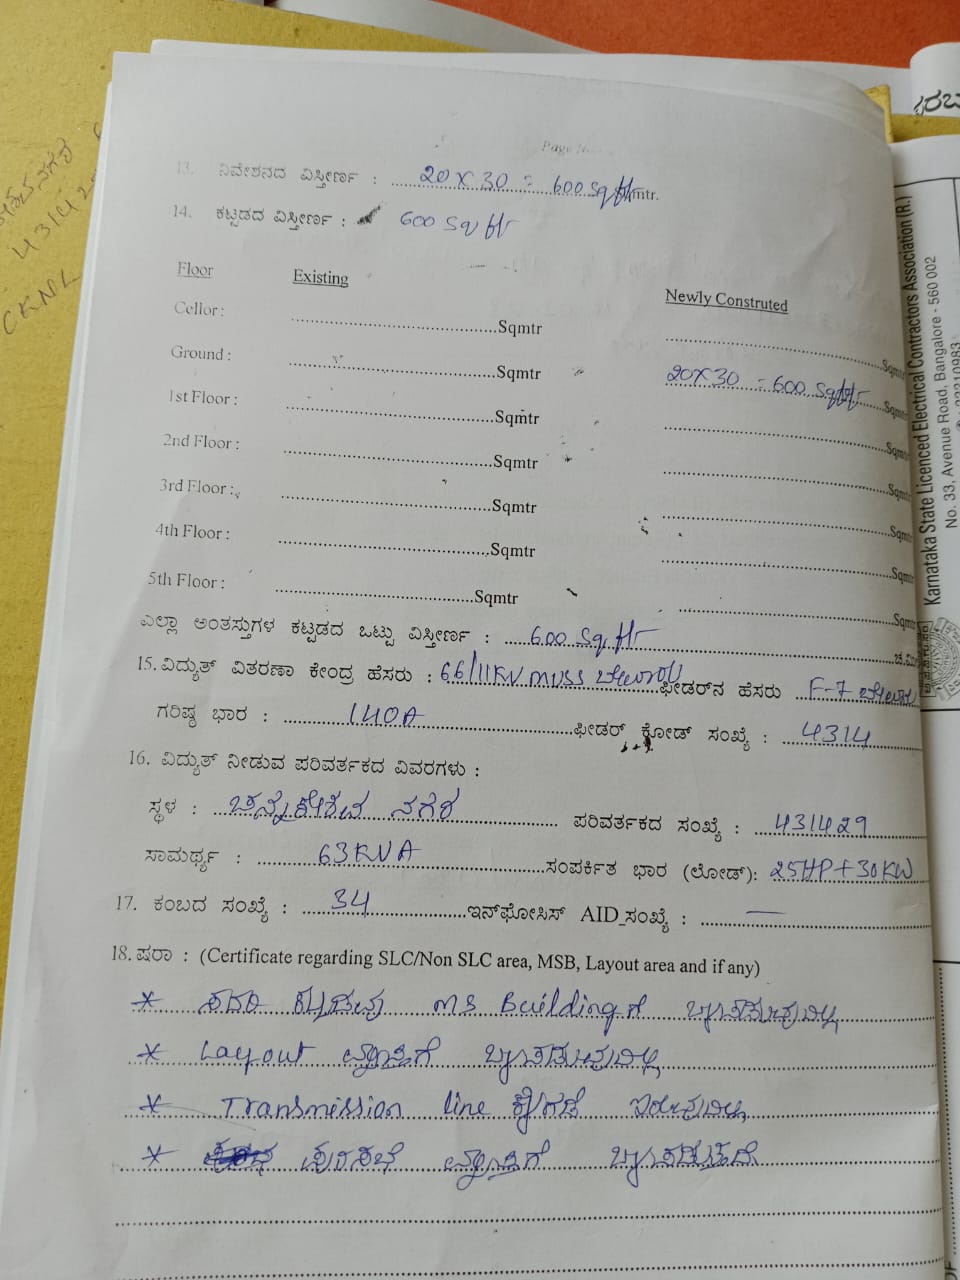 Page No
13. ನಿವೇಶನದ ವಿಸ್ತೀರ್ಣ : 20 X 30 = 600 Sq ftr mtr.
14. ಕಟ್ಟಡದ ವಿಸ್ತೀರ್ಣ : 600 Sq ftr
Floor Existing Newly Construted
Cellor : Sqmtr Sqmtr
Ground : Sqmtr 20X30 = 600 Sqftr Sqmtr
1st Floor : Sqmtr Sqmtr
2nd Floor : Sqmtr Sqmtr
3rd Floor : Sqmtr Sqmtr
4th Floor : Sqmtr Sqmtr
5th Floor : Sqmtr Sqmtr
ಎಲ್ಲಾ ಅಂತಸ್ತುಗಳ ಕಟ್ಟಡದ ಒಟ್ಟು ವಿಸ್ತೀರ್ಣ : 600 Sq ftr ಚ.ಮೀ
15. ವಿದ್ಯುತ್ ವಿತರಣಾ ಕೇಂದ್ರ ಹೆಸರು : 66/11KV MUSS ಬೇಲೂರು ಫೀಡರ್‌ನ ಹೆಸರು F-7 ಬೇಲೂರು
ಗರಿಷ್ಠ ಭಾರ : 140A ಫೀಡರ್ ಕೋಡ್ ಸಂಖ್ಯೆ : 4314
16. ವಿದ್ಯುತ್ ನೀಡುವ ಪರಿವರ್ತಕದ ವಿವರಗಳು :
ಸ್ಥಳ : ಚನ್ನಕೇಶವ ನಗರ ಪರಿವರ್ತಕದ ಸಂಖ್ಯೆ : 431429
ಸಾಮರ್ಥ್ಯ : 63KVA ಸಂಪರ್ಕಿತ ಭಾರ (ಲೋಡ್): 25HP+30KW
17. ಕಂಬದ ಸಂಖ್ಯೆ : 34 ಇನ್‌ಫೋಸಿಸ್ AID ಸಂಖ್ಯೆ : —
18. ಷರಾ : (Certificate regarding SLC/Non SLC area, MSB, Layout area and if any)
* ಸದರಿ ಕಟ್ಟಡವು MS Buildingಗೆ ಬರುವುದಿಲ್ಲ
* Layout ವ್ಯಾಪ್ತಿಗೆ ಬರುವುದಿಲ್ಲ
* Transmission line ಕೆಳಗಡೆ ಇರುವುದಿಲ್ಲ
* ಪುರಸಭೆ ವ್ಯಾಪ್ತಿಗೆ
Karnataka State Licenced Electrical Contractors Association (R.)
No. 33, Avenue Road, Bangalore - 560 002
ನಗರ
43142
CKNL